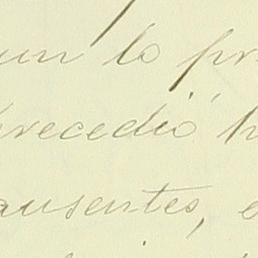 un lo pr
precedió h
ausentes, e